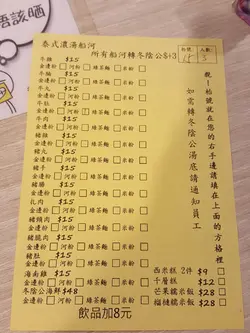 泰式濃湯船河
所有船河轉冬陰公$+3
枱號 人數
15 3
牛腩 $15
金邊粉 河粉 綠茶麵 米粉
$15
金邊粉 河粉 綠茶麵 米粉
牛丸 $15
金邊粉 河粉 綠茶麵 米粉
牛肚 $15
金邊粉 河粉 綠茶麵 米粉
$15
金邊粉 河粉 綠茶麵 米粉
豬丸 $15
金邊粉 河粉 綠茶麵 米粉
豬肉 $15
金邊粉 河粉 綠茶麵 米粉
$15
金邊粉 河粉 綠茶麵 米粉
扎肉 $15
金邊粉 河粉 綠茶麵 米粉
豬頸肉 $15
金邊粉 河粉 綠茶麵 米粉
$15
金邊粉 河粉 綠茶麵 米粉
豬肚 $15
金邊粉 河粉 綠茶麵 米粉
海南雞 $15
金邊粉 河粉 綠茶麵 米粉
冬陰公海鮮 $48
金邊粉 河粉 綠茶麵 米粉
西米糕 2件 $9
千層糕 $12
芒果糯米飯 $28
榴槤糯米飯 $28
飲品加8元
觀!枱號就在您的右手邊請填在上面的方格裡
如需轉冬陰公湯底請通知員工